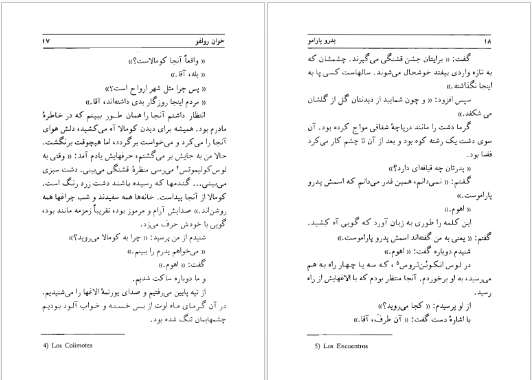 خوان رولفو ۱۷
« واقعاً آنجا کومالاست؟»
« بله، آقا.»
« پس چرا مثل شهر ارواح است؟»
« مردم اینجا روزگار بدی داشته‌اند، آقا.»
انتظار داشتم آنجا را همان طور ببینم که در خاطرهٔ
مادرم بود. همیشه برای دیدن کومالا آه می‌کشید، دلش هوای
آنجا را می‌کرد و می‌خواست برگردد، اما هیچوقت برنگشت.
حالا من به جایش بر می‌گشتم، حرفهایش یادم آمد: « وقتی به
لوس کولیموتس⁴ می‌رسی منظرهٔ قشنگی می‌بینی. دشت سبزی
می‌بینی... گندمها که رسیده باشند دشت زرد رنگ است.
کومالا از آنجا پیداست. خانه‌ها همه سفیدند و شب چراغها همه
روشن‌اند.» صدایش آرام و مرموز بود، تقریباً زمزمه مانند بود،
گویی با خودش حرف می‌زد.
شنیدم از من پرسید: « چرا به کومالا می‌روید؟»
« می‌خواهم پدرم را ببینم.»
گفت: « اهوم.»
و ما دوباره ساکت شدیم.
از تپه پایین می‌رفتیم و صدای یورتمهٔ الاغها را می‌شنیدیم.
در آن گرمای ماه اوت از بس خسته و خواب آلود بودیم
چشمهایمان تنگ شده بود.
4) Los Colimotes
۱۸ پدرو پارامو
گفت: « برایتان جشن قشنگی می‌گیرند. چشمشان که
به تازه واردی بیفتد خوشحال می‌شوند. سالهاست کسی پا به
اینجا نگذاشته.»
سپس افزود: « و چون شمایید از دیدنتان گل از گلشان
می شکفد.»
گرما دشت را مانند دریاچهٔ شفافی مواج کرده بود. آن
سوی دشت، یک رشته کوه بود و بعد از آن تا چشم کار می‌کرد
فضا بود.
« پدرتان چه قیافه‌ای دارد؟»
گفتم: « نمی‌دانم، همین قدر می‌دانم که اسمش پدرو
پاراموست.»
« اهوم.»
این کلمه را طوری به زبان آورد که گویی آه کشید.
گفتم: « یعنی به من گفته‌اند اسمش پدرو پاراموست.»
شنیدم دوباره گفت: « اهوم.»
در لوس انکوئن‌تروس⁵، که سه یا چهار راه به هم
می‌رسید، به او برخوردم. آنجا منتظر بودم که با الاغهایش از راه
رسید.
از او پرسیدم: « کجا می‌روید؟»
با اشارهٔ دست گفت: « آن طرف، آقا.»
5) Los Encuentros